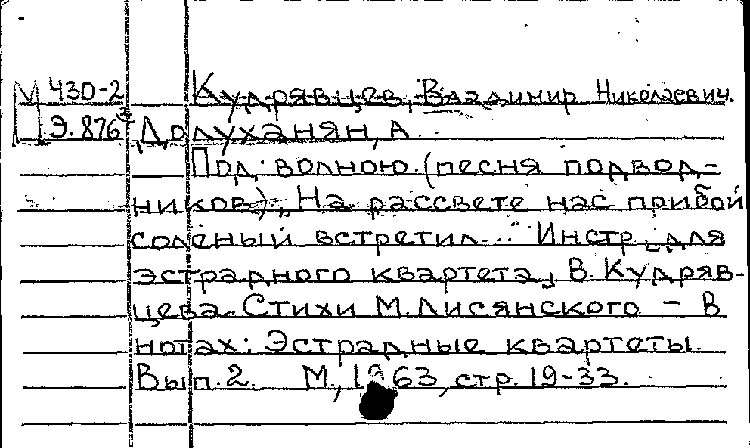 М 430-2 Кудрявцев, Владимир Николаевич.
Ц Э. 876 Долуханян, А
Под волною. (песня подвод-
ников) „На рассвете нас прибой
соленый встретил..." Инстр. для
эстрадного квартета, В. Кудряв-
цева. Стихи М. Лисянского - В
нотах: Эстрадные квартеты.
Вып. 2. М., 1963, стр. 19-33.